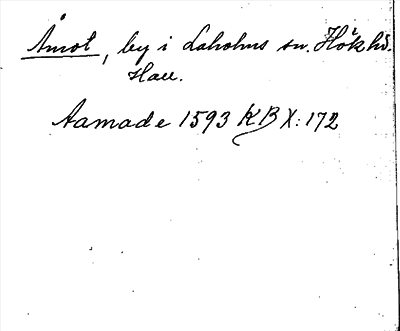 Åmot, by i Laholms sn. Höks hd.
Hall.
Aamade 1593 KB X: 172